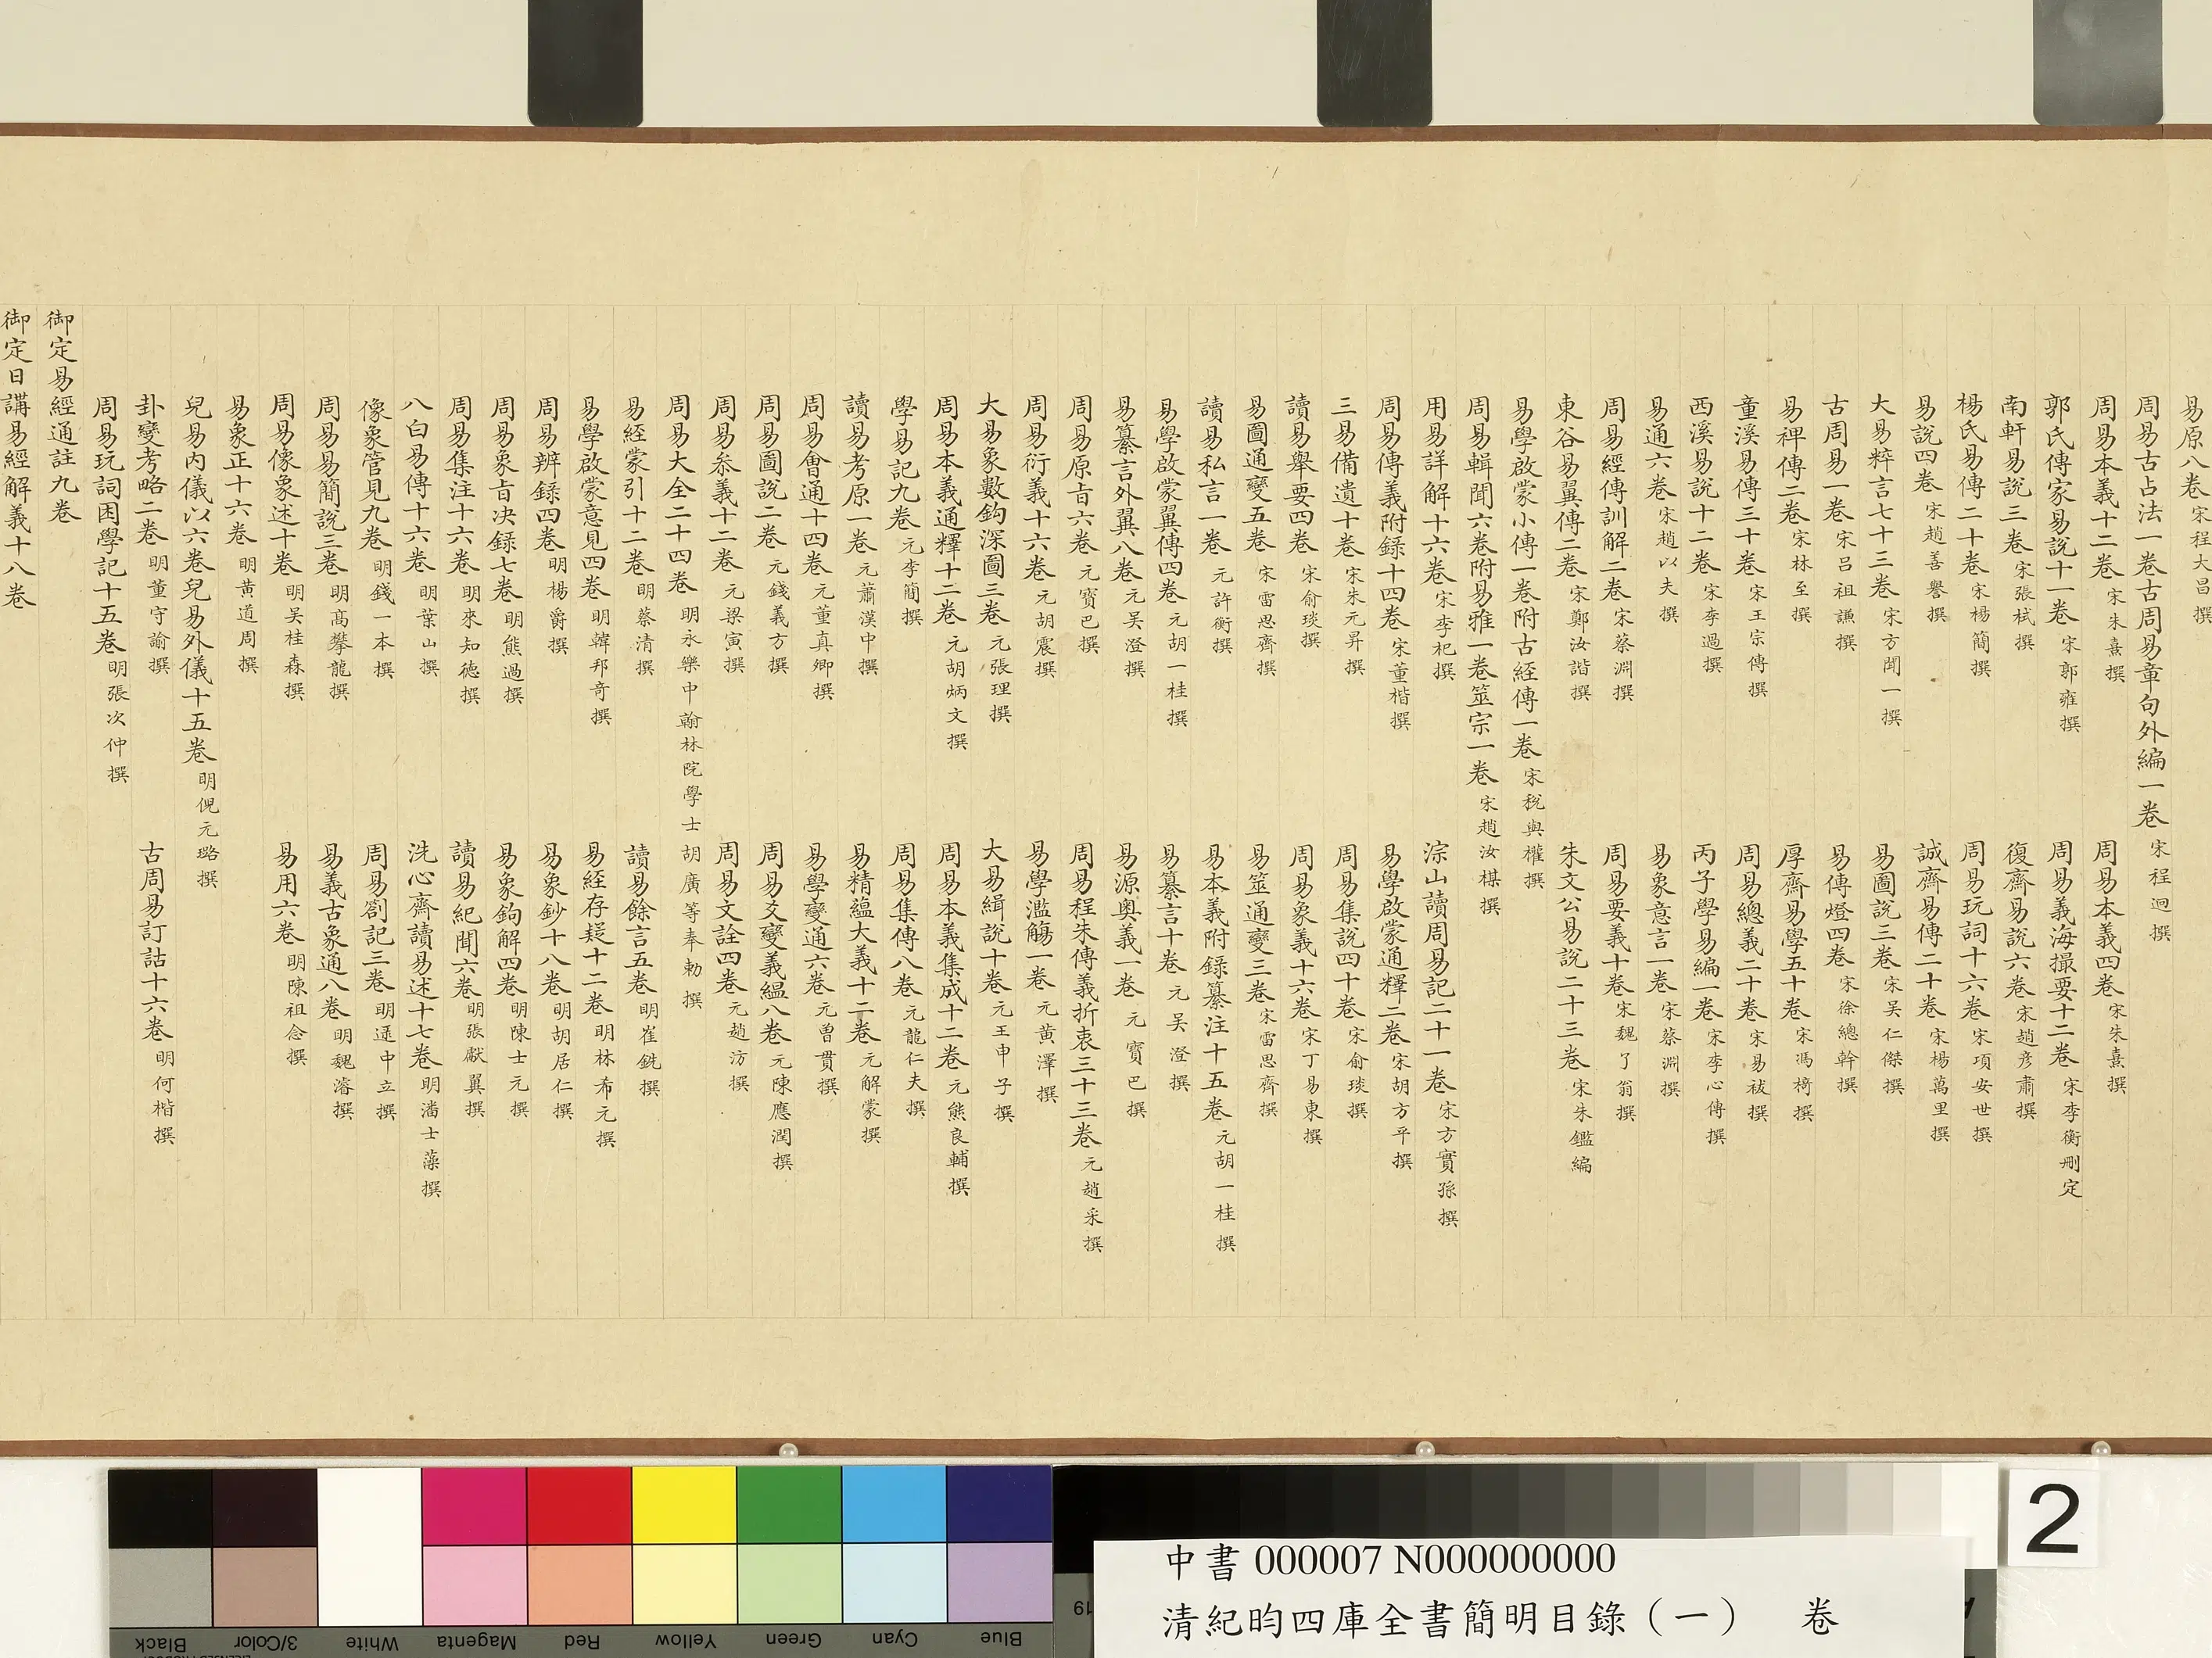 易原八卷 宋程大昌撰
周易古占法一卷古周易章句外編一卷 宋程迥撰
周易本義十二卷 宋朱熹撰 周易本義四卷 宋朱熹撰
郭氏傳家易說十一卷 宋郭雍撰 周易義海撮要十二卷 宋李衡刪定
南軒易說三卷 宋張栻撰 復齋易說六卷 宋趙彥肅撰
楊氏易傳二十卷 宋楊簡撰 周易玩詞十六卷 宋項安世撰
易說四卷 宋趙善譽撰 誠齋易傳二十卷 宋楊萬里撰
大易粹言七十三卷 宋方聞一撰 易圖說三卷 宋吳仁傑撰
古周易一卷 宋呂祖謙撰 易傳燈四卷 宋徐總幹撰
易裨傳二卷 宋林至撰 厚齋易學五十卷 宋馮椅撰
童溪易傳三十卷 宋王宗傳撰 周易總義二十卷 宋易祓撰
西溪易說十二卷 宋李過撰 丙子學易編一卷 宋李心傳撰
易通六卷 宋趙以夫撰 易象意言一卷 宋蔡淵撰
周易經傳訓解二卷 宋蔡淵撰 周易要義十卷 宋魏了翁撰
東谷易翼傳二卷 宋鄭汝諧撰 朱文公易說二十三卷 宋朱鑑編
易學啟蒙小傳一卷附古經傳一卷 宋稅與權撰
周易輯聞六卷附易雅一卷筮宗一卷 宋趙汝楳撰
用易詳解十六卷 宋李杞撰 淙山讀周易記二十一卷 宋方實孫撰
周易傳義附錄十四卷 宋董楷撰 易學啟蒙通釋二卷 宋胡方平撰
三易備遺十卷 宋朱元昇撰 周易集說四十卷 宋俞琰撰
讀易舉要四卷 宋俞琰撰 周易象義十六卷 宋丁易東撰
易圖通變五卷 宋雷思齊撰 易筮通變三卷 宋雷思齊撰
讀易私言一卷 元許衡撰 易本義附錄纂注十五卷 元胡一桂撰
易學啟蒙翼傳四卷 元胡一桂撰 易纂言十卷 元吳澄撰
易纂言外翼八卷 元吳澄撰 易源奧義一卷 元寶巴撰
周易原旨六卷 元寶巴撰 周易程朱傳義折衷三十三卷 元趙采撰
周易衍義十六卷 元胡震撰 易學濫觴一卷 元黃澤撰
大易象數鉤深圖三卷 元張理撰 大易緝說十卷 元王申子撰
周易本義通釋十二卷 元胡炳文撰 周易本義集成十二卷 元熊良輔撰
學易記九卷 元李簡撰 周易集傳八卷 元龍仁夫撰
讀易考原一卷 元蕭漢中撰 易精蘊大義十二卷 元解蒙撰
周易會通十四卷 元董真卿撰 易學變通六卷 元曾貫撰
周易圖說二卷 元錢義方撰 周易爻變義縕八卷 元陳應潤撰
周易參義十二卷 元梁寅撰 周易文詮四卷 元趙汸撰
周易大全二十四卷 明永樂中翰林院學士胡廣等奉勅撰
易經蒙引十二卷 明蔡清撰 讀易餘言五卷 明崔銑撰
易學啟蒙意見四卷 明韓邦奇撰 易經存疑十二卷 明林希元撰
周易辨録四卷 明楊爵撰 易象鈔十八卷 明胡居仁撰
周易象旨決録七卷 明熊過撰 易象鉤解四卷 明陳士元撰
周易集注十六卷 明來知德撰 讀易紀聞六卷 明張獻翼撰
八白易傳十六卷 明葉山撰 洗心齋讀易述十七卷 明潘士藻撰
像象管見九卷 明錢一本撰 周易劄記三卷 明逯中立撰
周易易簡說三卷 明高攀龍撰 易義古象通八卷 明魏濬撰
周易像象述十卷 明吳桂森撰 易用六卷 明陳祖念撰
易象正十六卷 明黃道周撰
兒易內儀以六卷兒易外儀十五卷 明倪元璐撰
卦變考略二卷 明董守諭撰 古周易訂詁十六卷 明何楷撰
周易玩詞困學記十五卷 明張次仲撰
御定易經通註九卷
御定日講易經解義十八卷
2
中書 000007 N000000000
清紀昀四庫全書簡明目錄（一） 卷
Black 3/Color White Magenta Red Yellow Green Cyan Blue
19